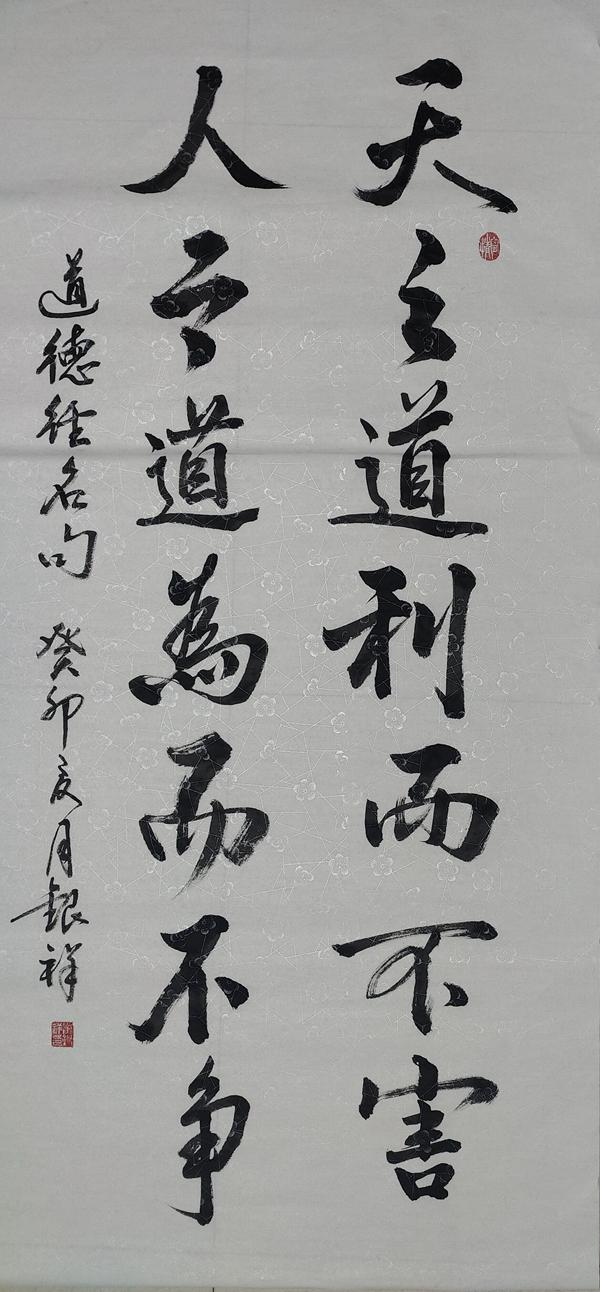 天之道利而不害
人之道為而不争
道德经名句 癸卯夏月銀祥